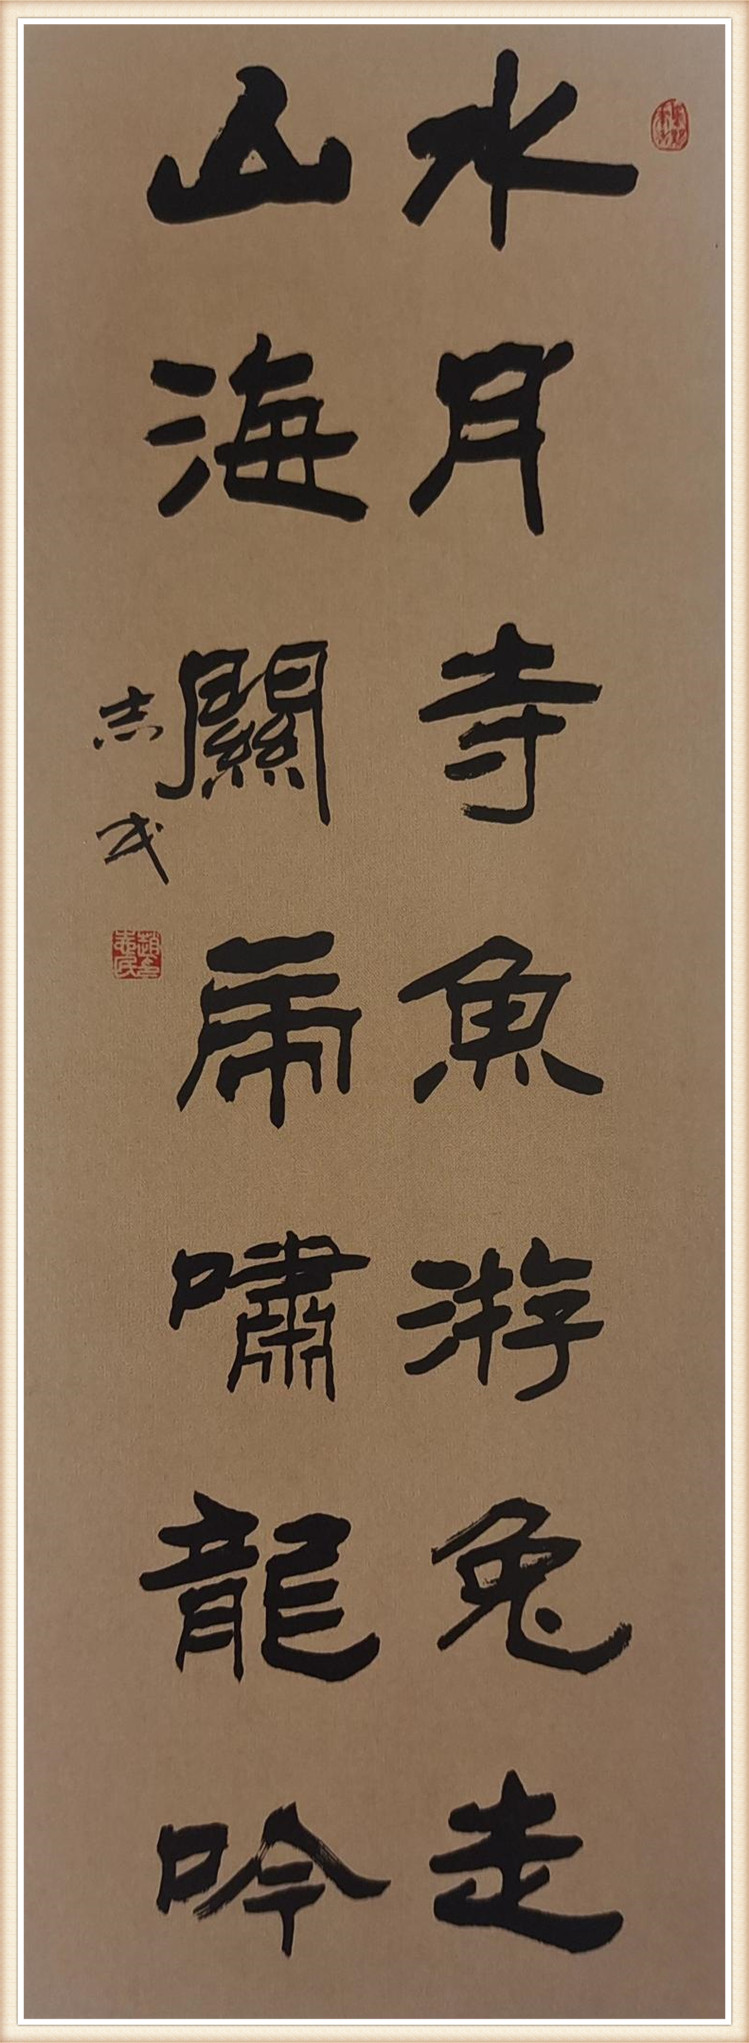 水月寺魚游兔走
山海關虎嘯龍吟
志民